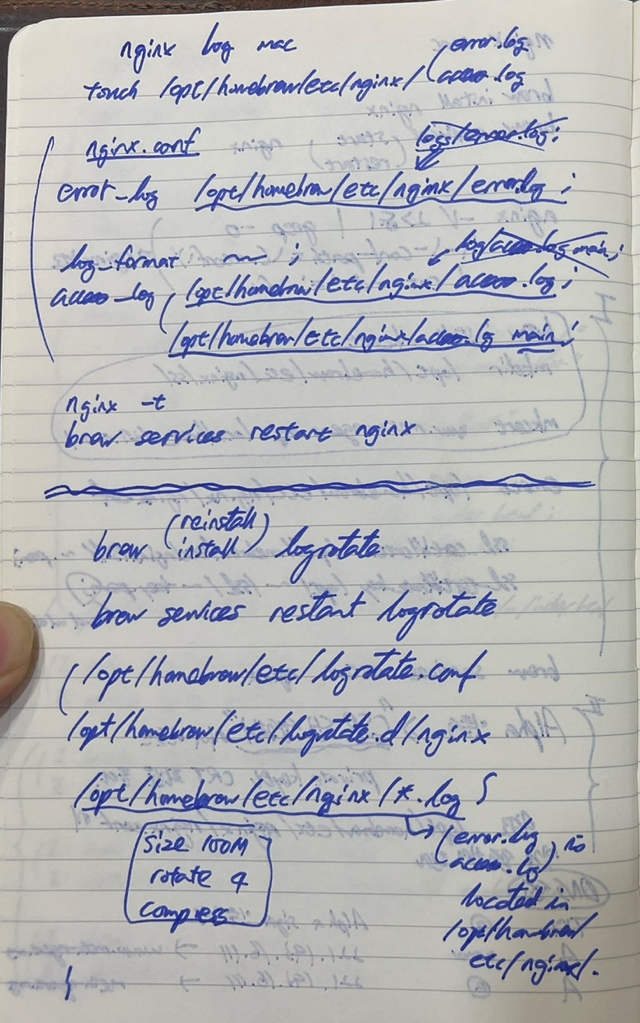 nginx log mac
touch /opt/homebrew/etc/nginx/ ( error.log
access.log
nginx.conf
logs/error.log;
error_log /opt/homebrew/etc/nginx/error.log ;
log_format ~~ ;
log/access.log main;
access_log ( /opt/homebrew/etc/nginx/access.log ;
/opt/homebrew/etc/nginx/access.log main ;
nginx -t
brew services restart nginx
brew (reinstall
install) logrotate
brew services restart logrotate
( /opt/homebrew/etc/logrotate.conf
/opt/homebrew/etc/logrotate.d/nginx
/opt/homebrew/etc/nginx/*.log {
size 100M
rotate 4
compress
}
→ ( error.log
access.log ) is
located in
/opt/homebrew/
etc/nginx/.